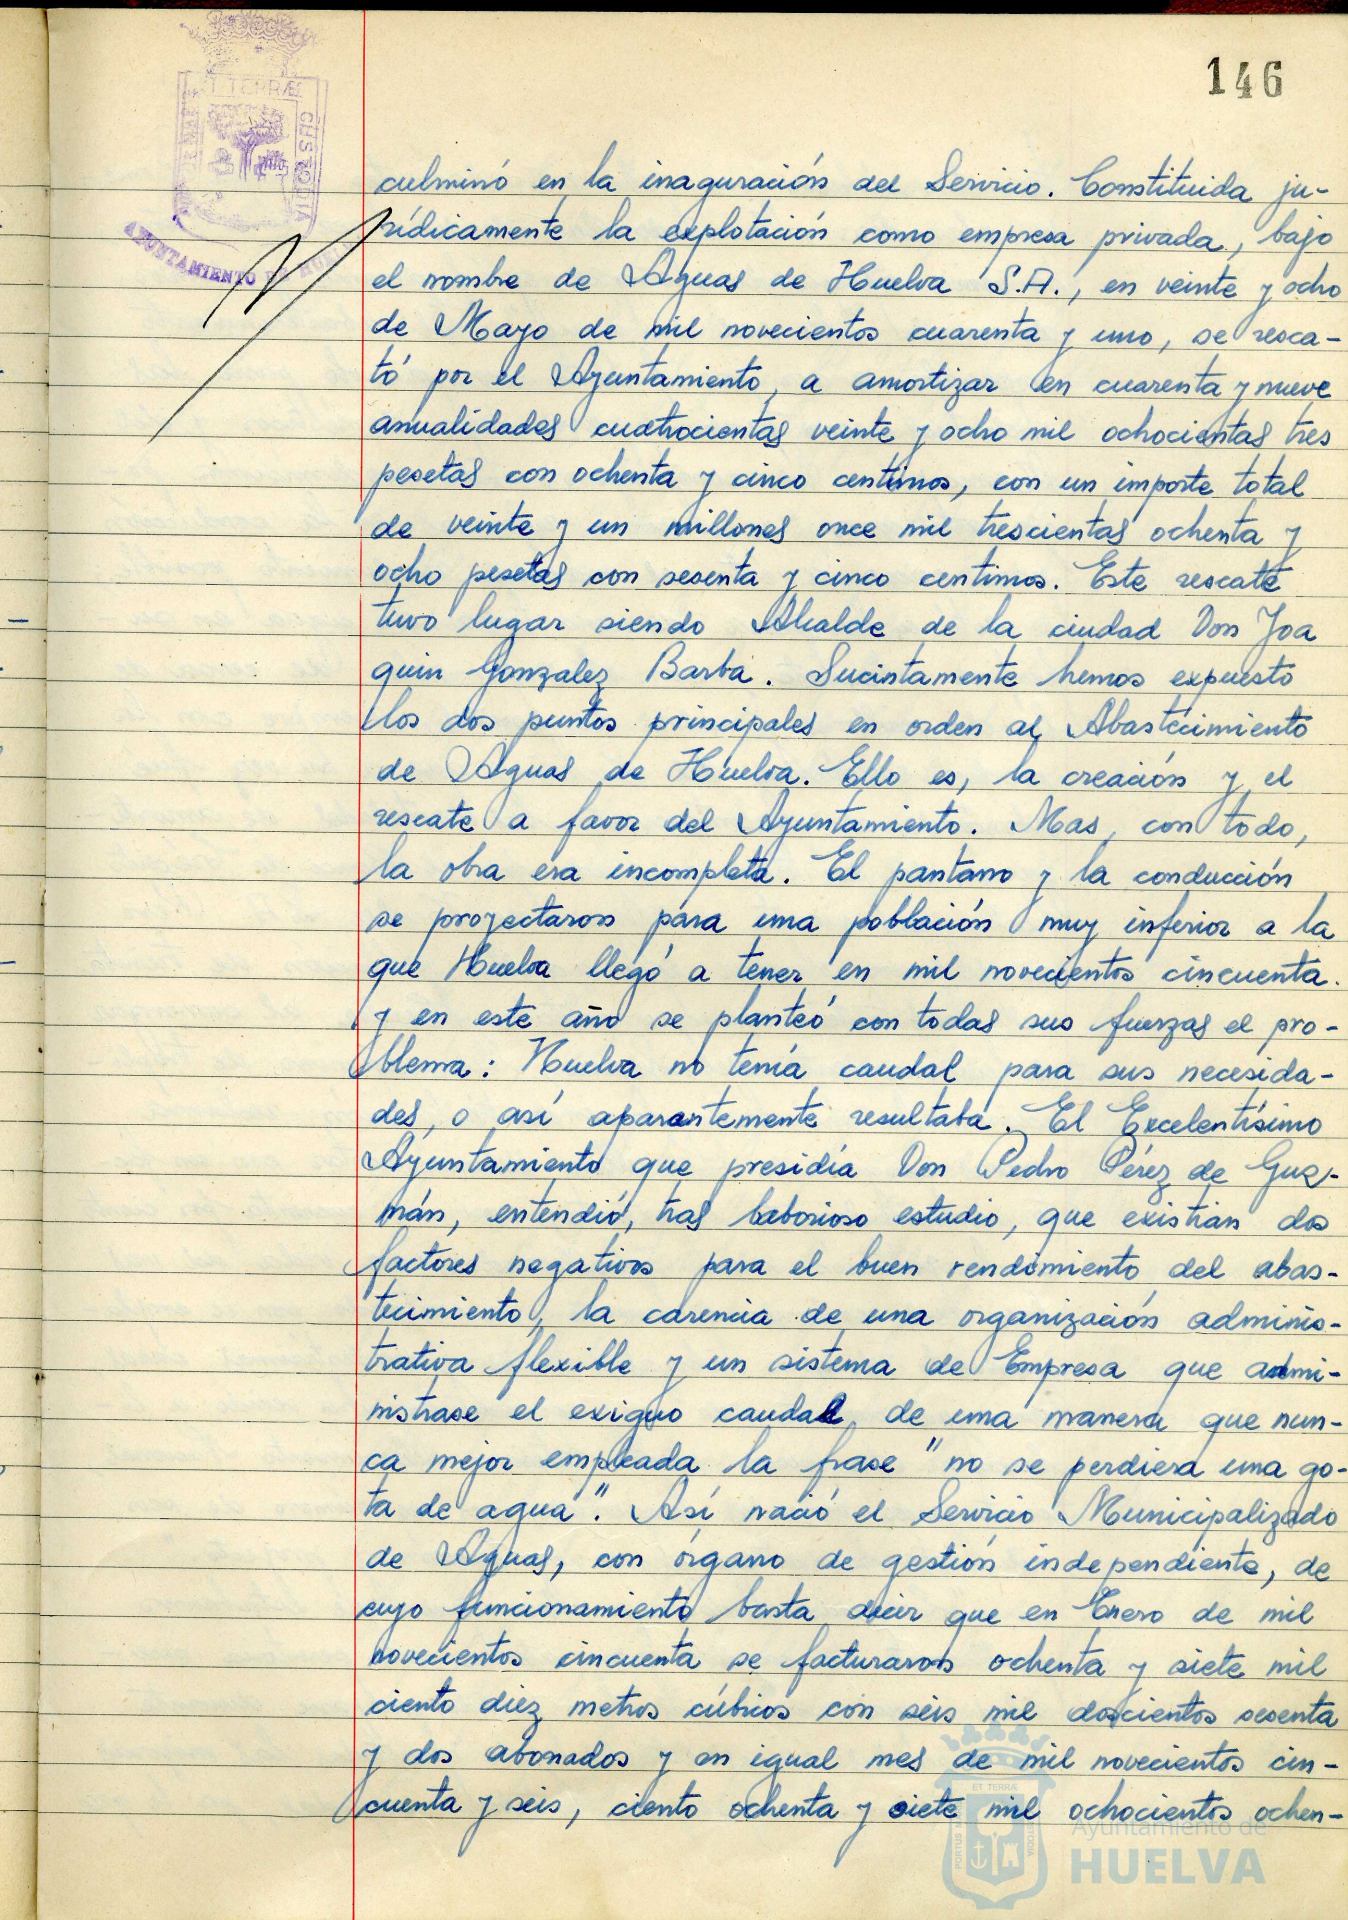 146
ET TERRÆ
CUSTODIA
AYUNTAMIENTO DE HUEL
culminó en la inaguración del Servicio. Constituida ju-
rídicamente la explotación como empresa privada, bajo
el nombre de Aguas de Huelva S.A., en veinte y ocho
de Mayo de mil novecientos cuarenta y uno, se resca-
tó por el Ayuntamiento, a amortizar en cuarenta y nueve
anualidades cuatrocientas veinte y ocho mil ochocientas tres
pesetas con ochenta y cinco centimos, con un importe total
de veinte y un millones once mil trescientas ochenta y
ocho pesetas con sesenta y cinco centimos. Este rescate
tuvo lugar siendo Alcalde de la ciudad Don Joa
quin Gonzalez Barba. Sucintamente hemos expuesto
los dos puntos principales en orden al Abastecimiento
de Aguas de Huelva. Ello es, la creación y el
rescate a favor del Ayuntamiento. Mas, con todo,
la obra era incompleta. El pantano y la conducción
se proyectaron para una población muy inferior a la
que Huelva llegó a tener en mil novecientos cincuenta.
y en este año se planteó con todas sus fuerzas el pro-
blema: Huelva no tenía caudal para sus necesida-
des, o así aparantemente resultaba. El Excelentísimo
Ayuntamiento que presidía Don Pedro Pérez de Guz-
mán, entendió, tras laborioso estudio, que existían dos
factores negativos para el buen rendimiento del abas-
tecimiento, la carencia de una organización adminis-
trativa flexible y un sistema de Empresa que admi-
nistrase el exiguo caudal de una manera que nun-
ca mejor empleada la frase "no se perdiera una go-
ta de agua". Así nació el Servicio Municipalizado
de Aguas, con órgano de gestión independiente, de
cuyo funcionamiento basta decir que en Enero de mil
novecientos cincuenta se facturaron ochenta y siete mil
ciento diez metros cúbicos con seis mil doscientos sesenta
y dos abonados y en igual mes de mil novecientos cin-
cuenta y seis, ciento ochenta y siete mil ochocientos ochen-
ET TERRÆ
PORTUS M
CUSTODIA
Ayuntamiento de
HUELVA